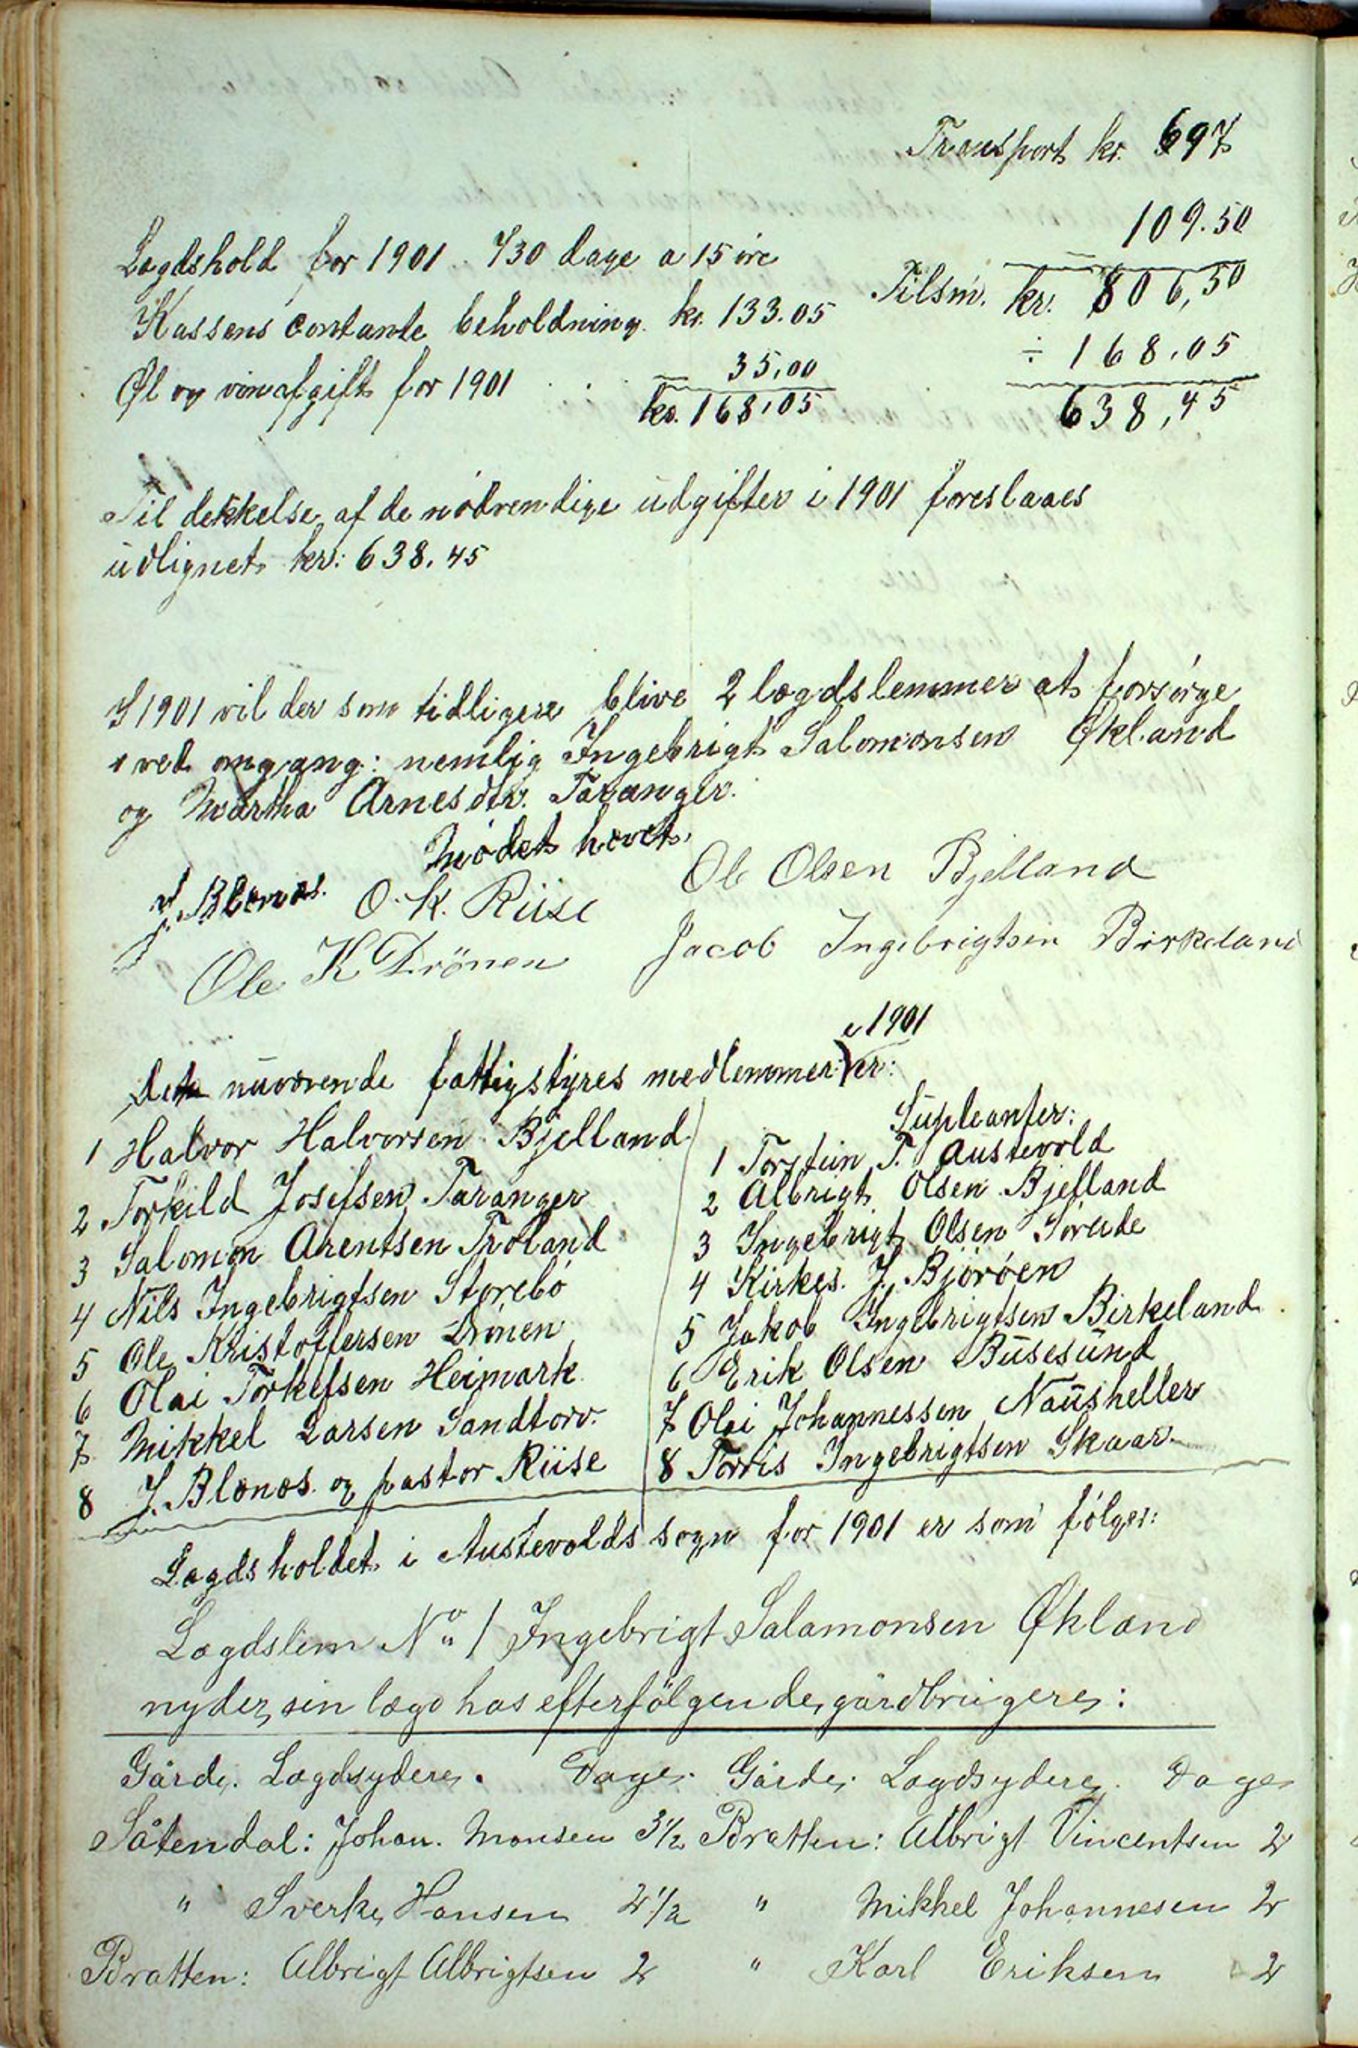 Transport kr. 697
Lægdshold for 1901. 730 dage a 15 öre 109.50
Kassens contante beholdning kr. 133.05 Tilsm. kr. 806,50
Øl og vinafgift for 1901 . . 35,00 ÷ 168,05
kr. 168,05 638,45
Til dekkelse af de nödvendige udgifter i 1901 foreslaaes
udlignet kr: 638.45
I 1901 vil der som tidligere blive 2 lægdslemmer at forsörge
ved omgang: nemlig Ingebrigt Salomonsen Økland
og Martha Arnesdtr. Taranger.
Mödet hævet.
J. Blænæs. O. K. Riise Ole Olsen Bjelland
Ole K Drönen Jacob Ingebrigtsen Birkeland
i 1901
Det nuværende fattigstyres medlemmer er:
Supleanter:
1 Halvor Halvorsen Bjelland 1 Torstein T. Austevold
2 Torkild Josefsen Taranger 2 Albrigt Olsen Bjelland
3 Salomon Arentsen Troland 3 Ingebrigt Olsen Sörude
4 Nils Ingebrigtsen Storebö 4 Kirkes. J. Björöen
5 Ole Kristoffersen Drönen 5 Jakob Ingebrigtsen Birkeland
6 Olai Torkelsen Heimark 6 Erik Olsen Busesund
7 Mikkel Larsen Sandtorv. 7 Olai Johannessen Nausheller
8 J. Blænæs og pastor Riise 8 Torris Ingebrigtsen Skaar
Lægdsholdet i Austevolds sogn for 1901 er som fölger:
Lægdslem No 1 Ingebrigt Salamonsen Økland
nyder sin lægd hos efterfölgende gårdbrugere:
Gårde. Lægdsydere. Dage. Gårde. Lægdsydere. Dage
Såtendal: Johan. Monsen 3 1/2 Bratten: Albrigt Vincentsen 2
" Sverke Hansen 2 1/2 " Mikkel Johannesen 2
Bratten: Albrigt Albrigtsen 2 " Karl Eriksen 2